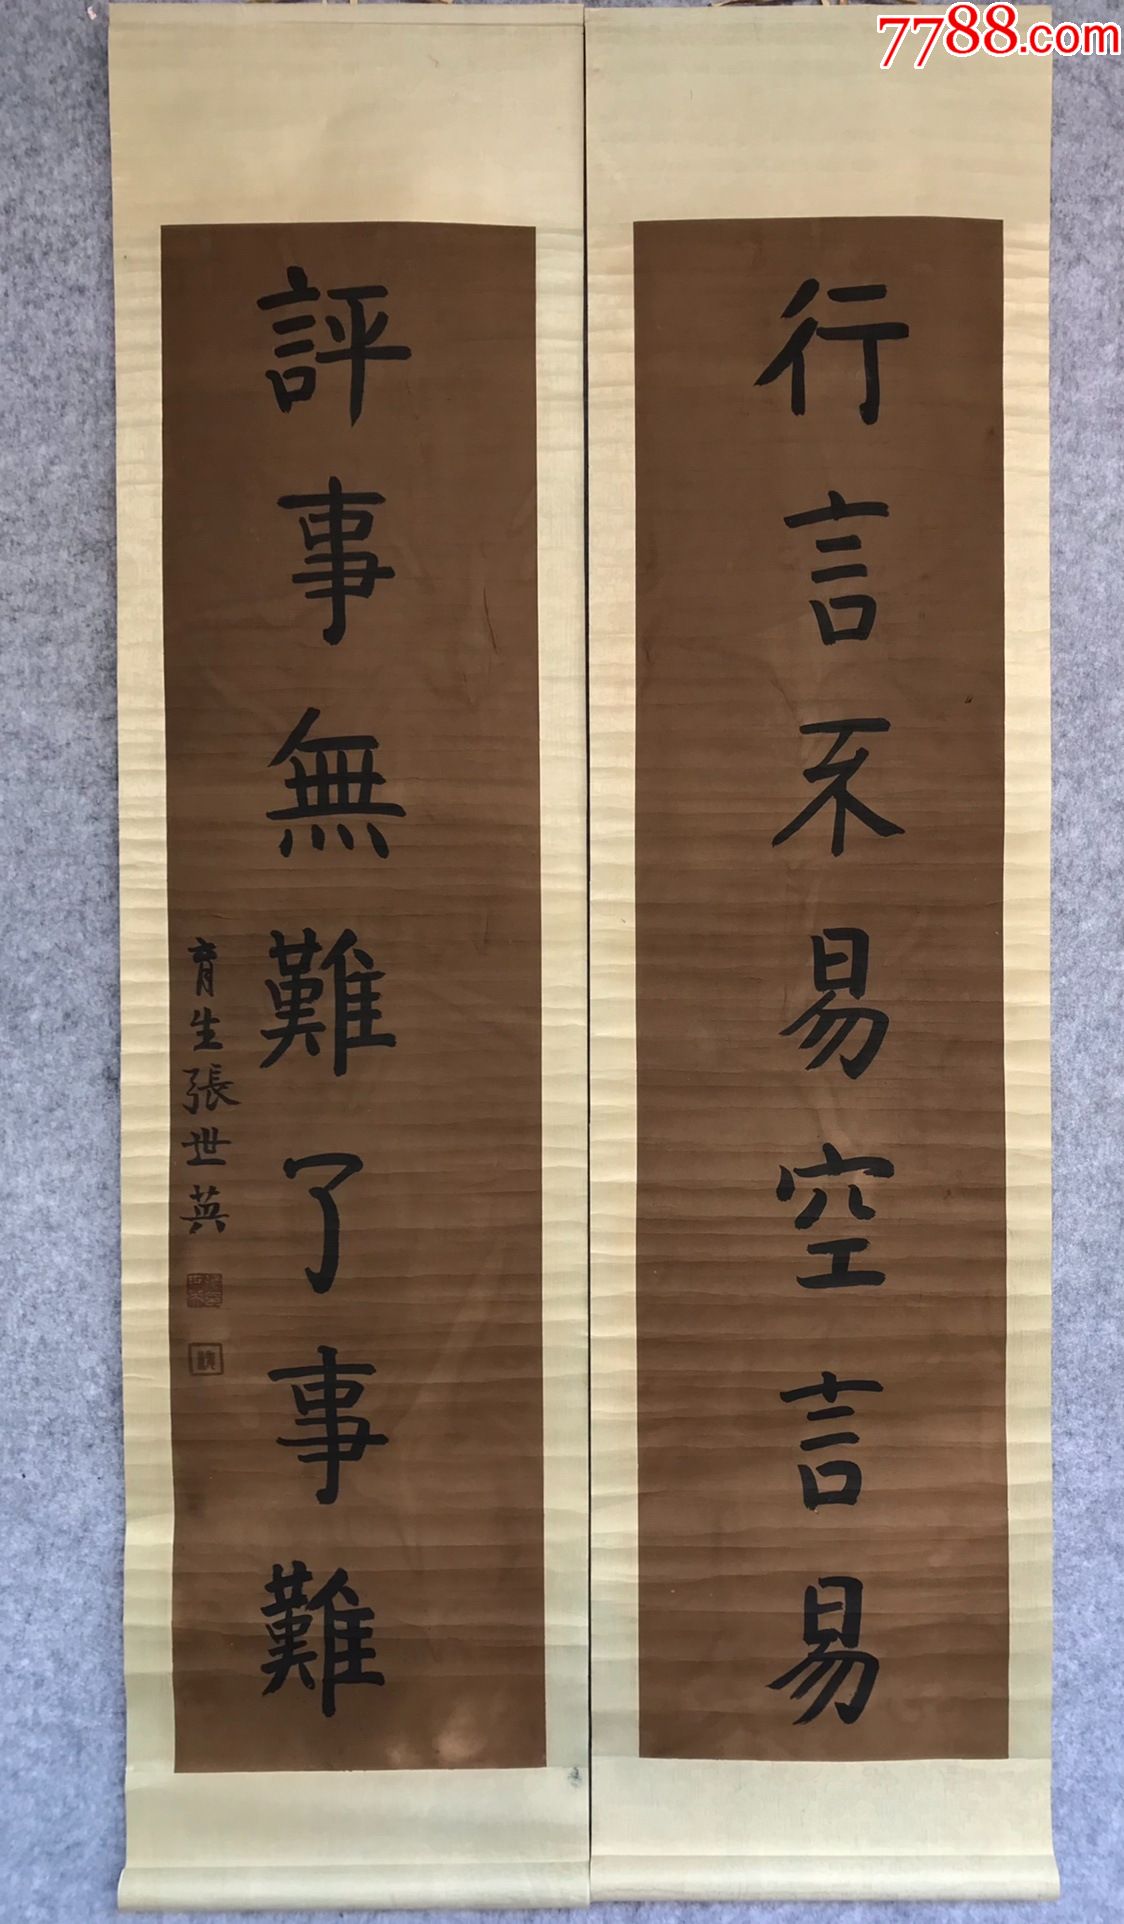 7788.com
行言不易空言易
評事無難了事難
育生張世英